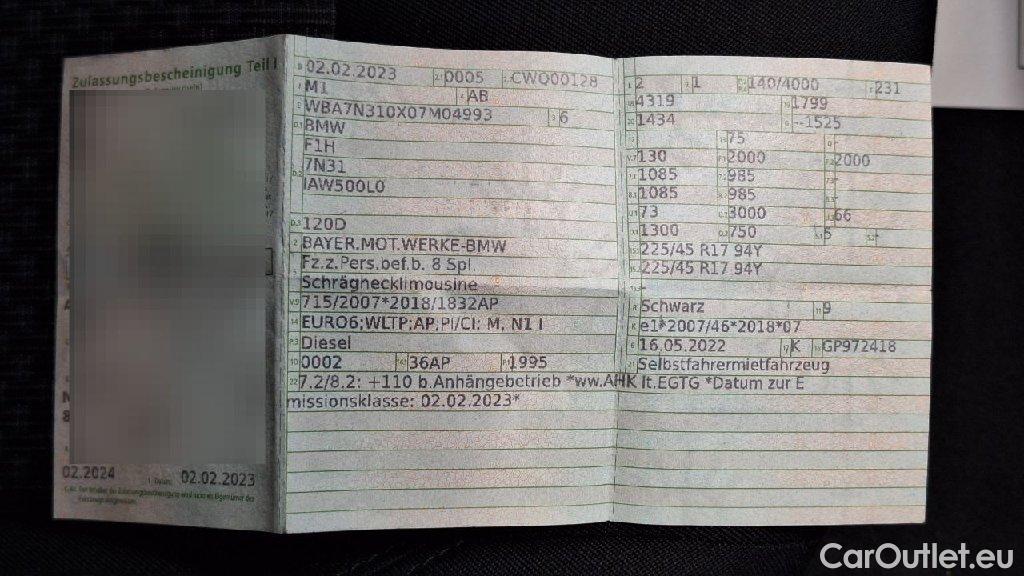 Zulassungsbescheinigung Teil I
02.2024 02.02.2023
02.02.2023 0005 CWO00128
M1 AB
WBA7N310X07M04993 6
BMW
F1H
7N31
IAW500L0
120D
BAYER.MOT.WERKE-BMW
Fz.z.Pers.bef.b. 8 Spl
Schräghecklimousine
715/2007*2018/1832AP
EURO6;WLTP;AP;PI/CI; M, N1 I
Diesel
0002 36AP 1995
7.2/8.2: +110 b.Anhängebetrieb *ww.AHK lt.EGTG *Datum zur E
missionsklasse: 02.02.2023*
2 1 140/4000 231
4319 1799
1434 --1525
75
130 2000 2000
1085 985
1085 985
73 3000 66
1300 750 5 -
225/45 R17 94Y
225/45 R17 94Y
Schwarz 9
e1*2007/46*2018*07
16.05.2022 K GP972418
Selbstfahrermietfahrzeug
CarOutlet.eu